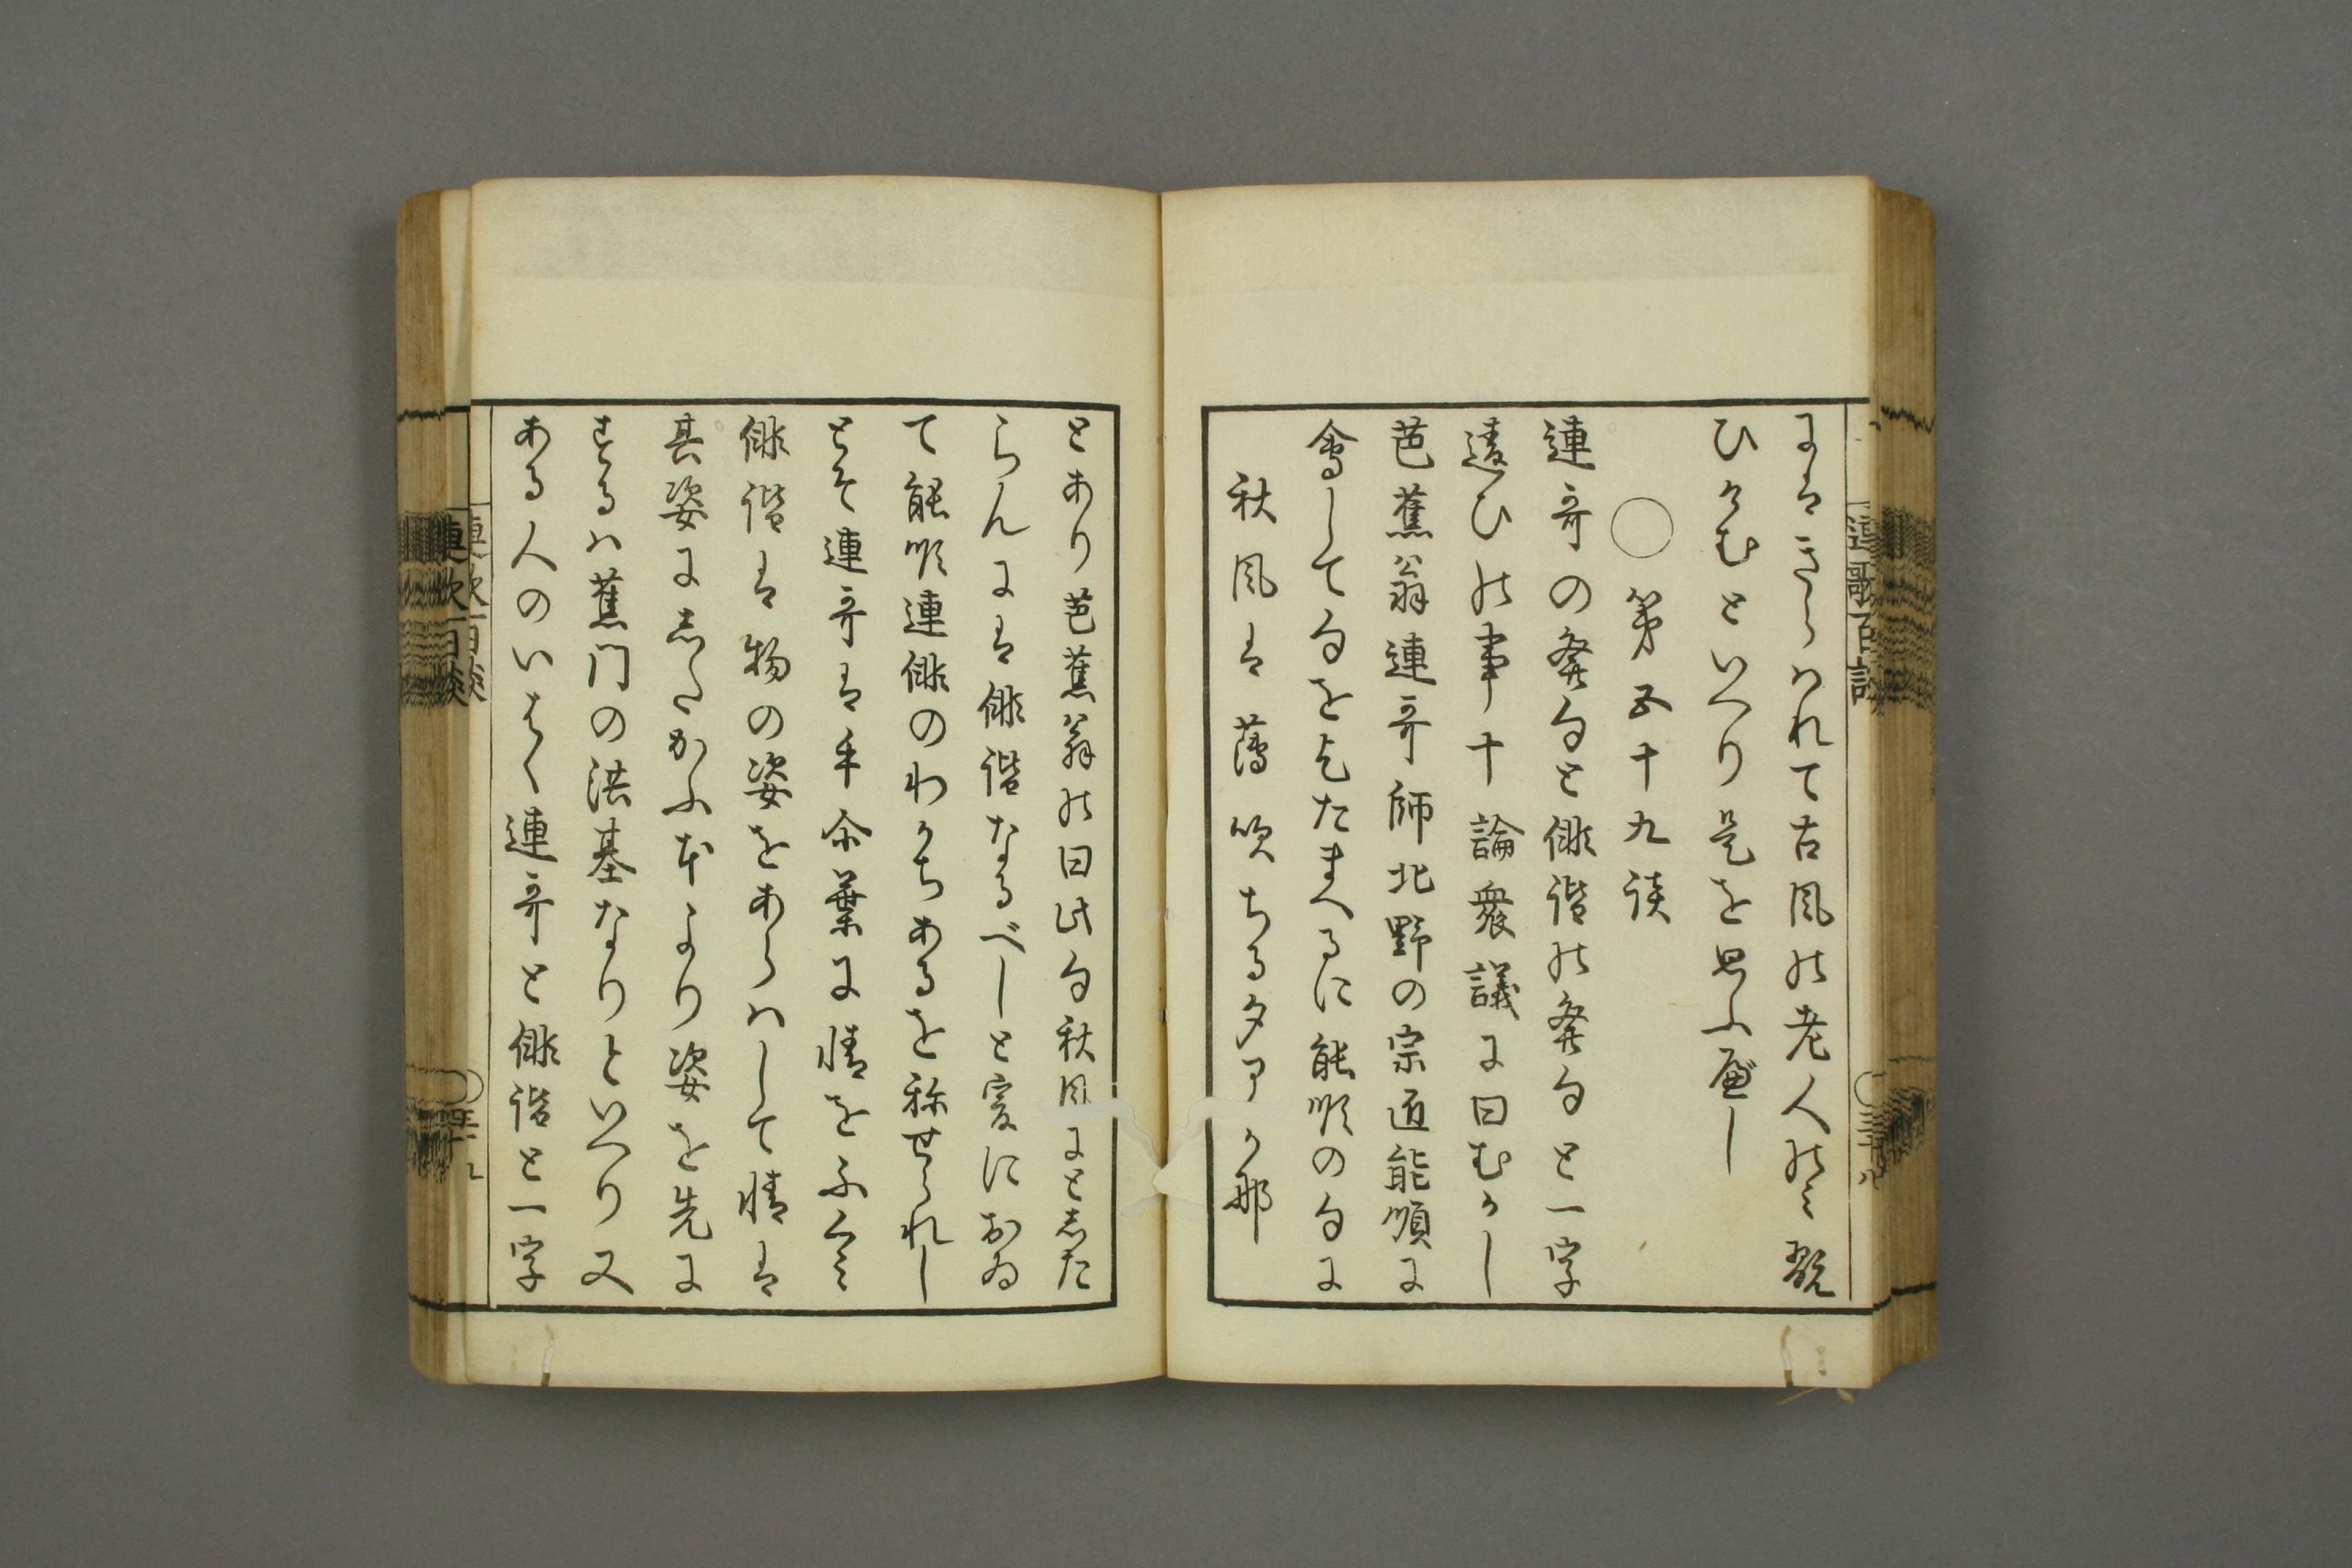 にはきらはれて古風の老人のミ翫
ひけむといへり是を思ふ可し
○第五十九談
連哥の発句と俳諧の発句と一字
違ひの事十論衆議に曰むかし
芭蕉翁連哥師北野の宗匠能順に
會して句を乞たまへるに能順の句に
秋風は薄吹ちる夕アか那
とあり芭蕉翁の曰此句秋風にとした
らんには俳諧なるべしと爰におゐ
て能順連俳のわかちあるを称せられし
とそ連哥は手尓葉に情をふくミ
俳諧は物の姿をあらはして情は
其姿にしたかふ本より姿を先に
するハ蕉门の洪基なりといへり又
ある人のいはく連哥と俳諧と一字
連歌百談
三十八